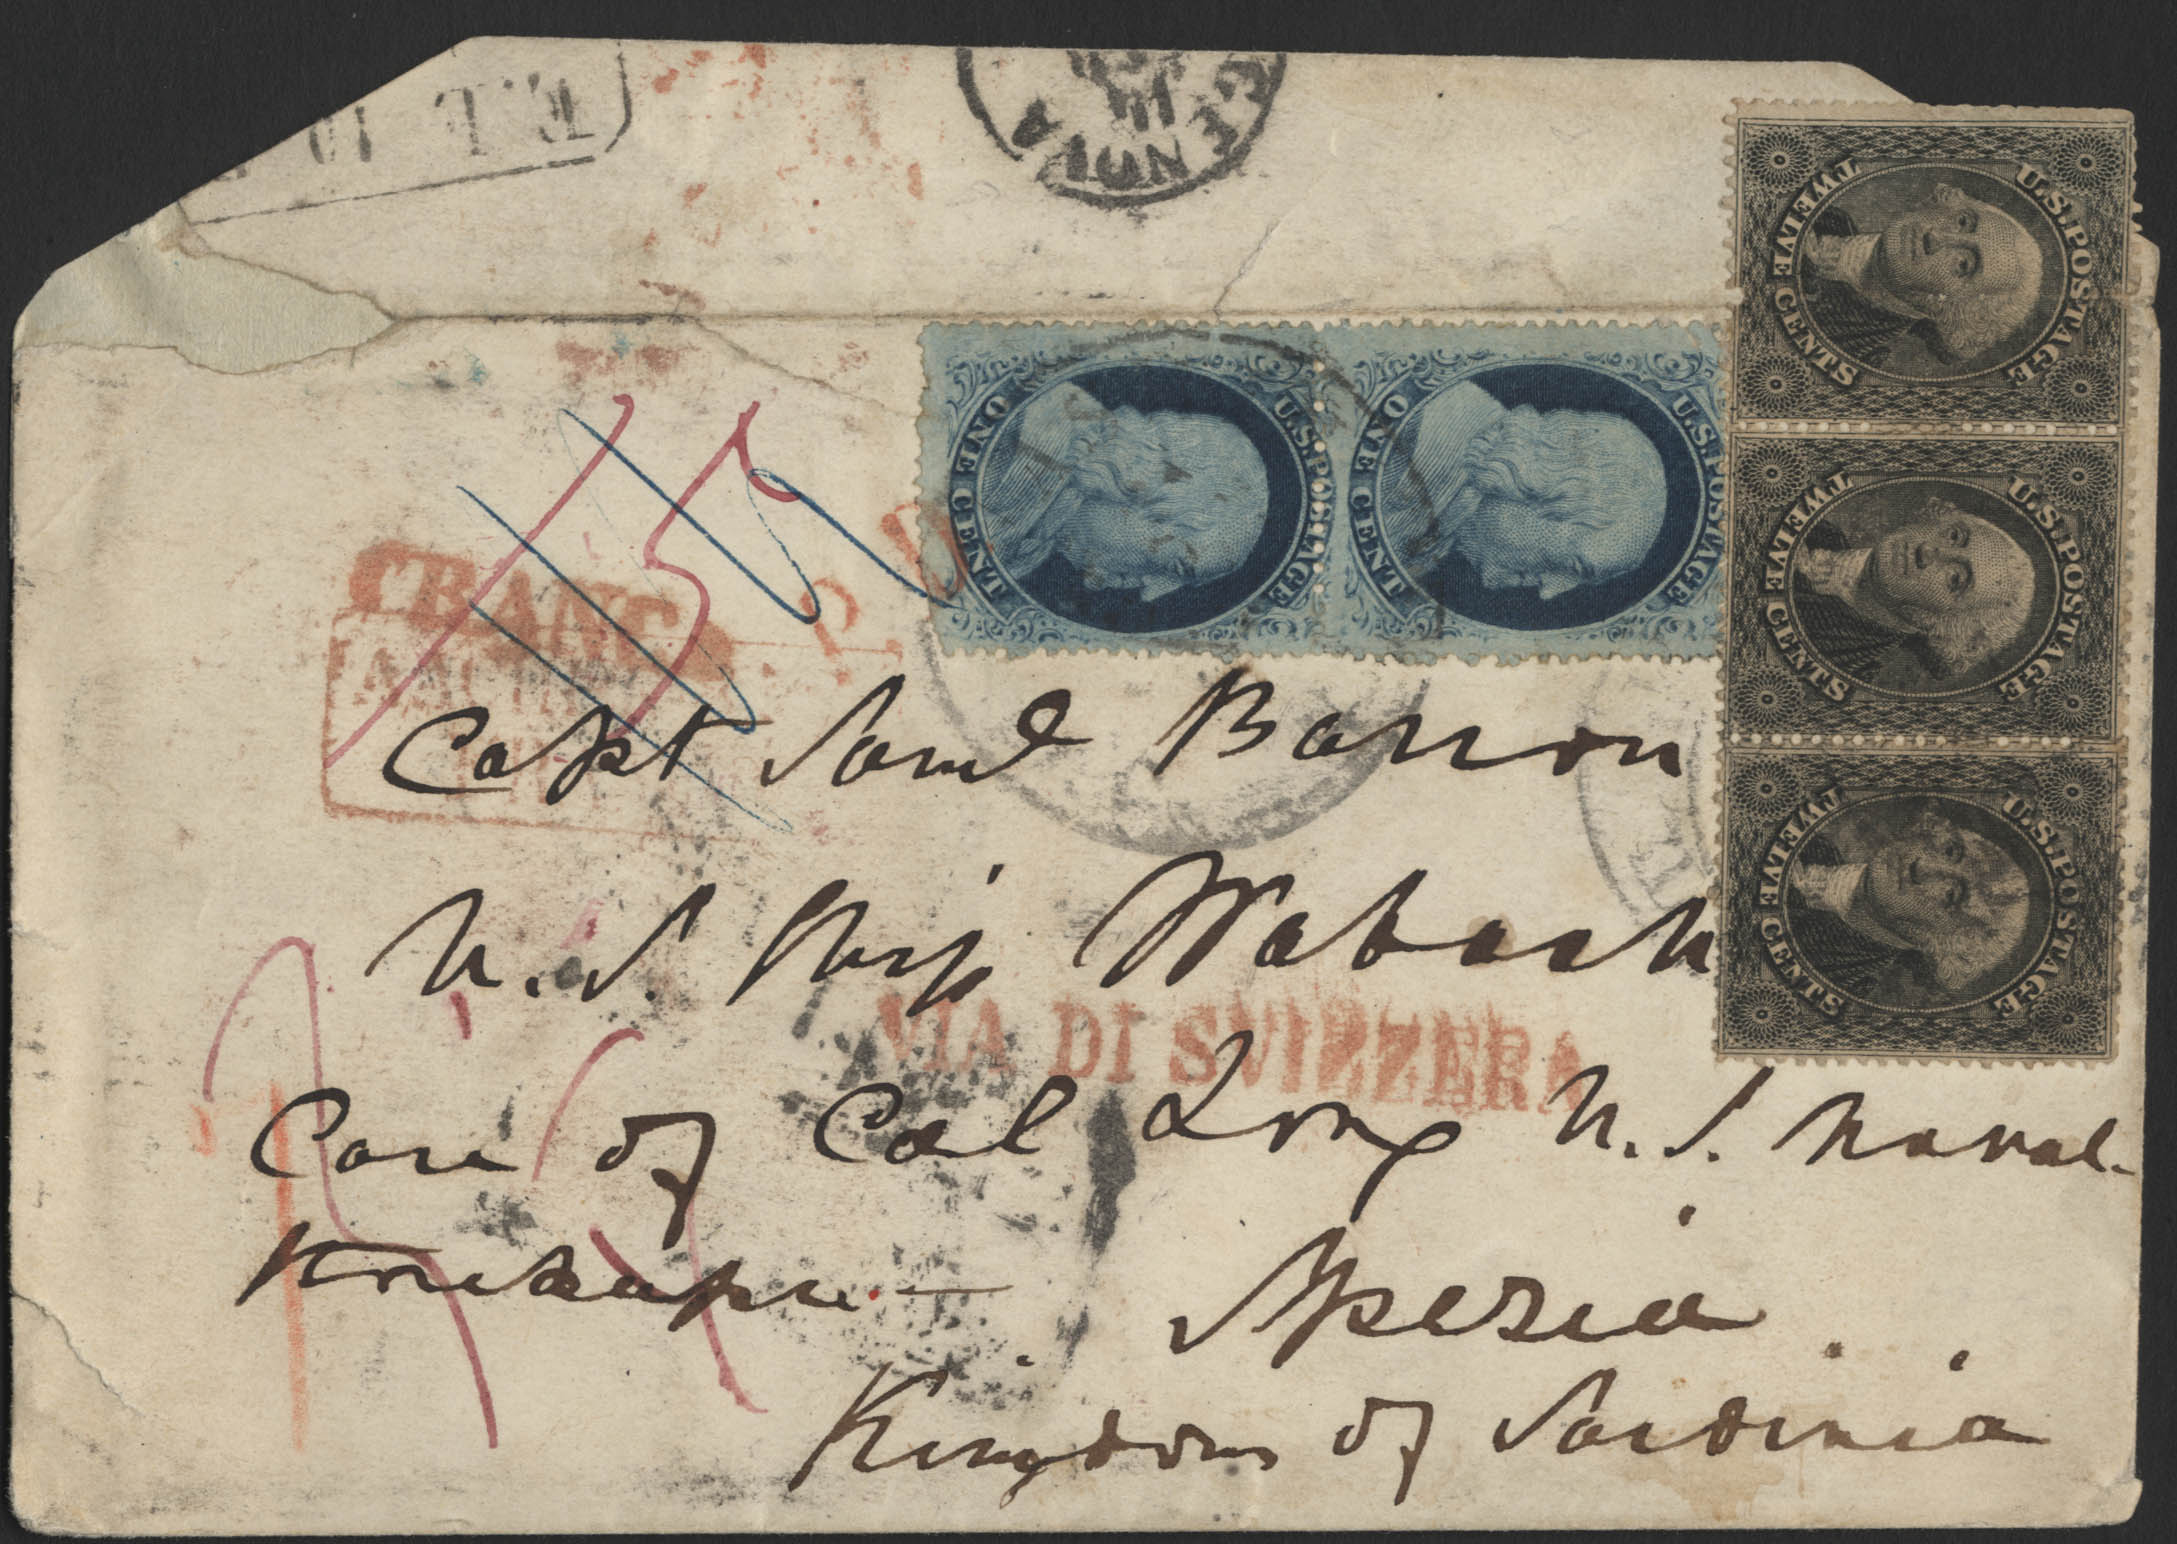 GENOVA
U.S. POSTAGE
TWELVE CENTS
U.S. POSTAGE
TWELVE CENTS
U.S. POSTAGE
TWELVE CENTS
U.S. POSTAGE
ONE CENT.
U.S. POSTAGE
ONE CENT.
FRANCO
P. D.
Capt Saml Barron
U.S. Ship Wabash
VIA DI SVIZZERA
Care of Cal Long U.S. Naval
Storekeeper
Spezia
Kingdom of Sardinia